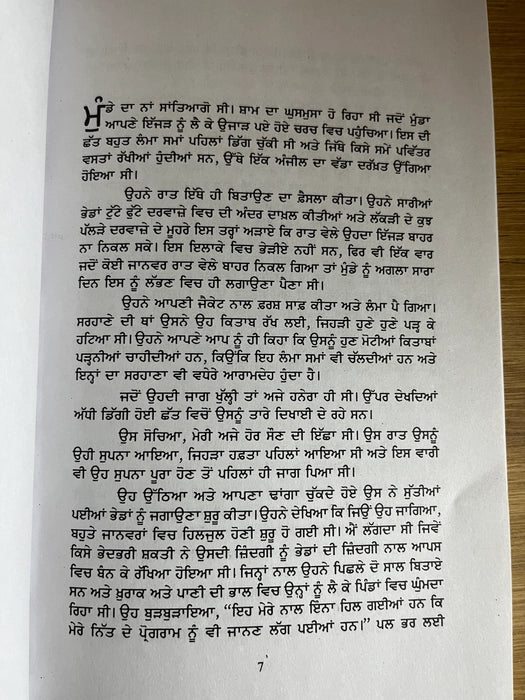 ਮੁੰਡੇ ਦਾ ਨਾਂ ਸਾਂਤਿਆਗੋ ਸੀ। ਸ਼ਾਮ ਦਾ ਘੁਸਮੁਸਾ ਹੋ ਰਿਹਾ ਸੀ ਜਦੋਂ ਮੁੰਡਾ
ਆਪਣੇ ਇੱਜੜ ਨੂੰ ਲੈ ਕੇ ਉਜਾੜ ਪਏ ਹੋਏ ਚਰਚ ਵਿਚ ਪਹੁੰਚਿਆ। ਇਸ ਦੀ
ਛੱਤ ਬਹੁਤ ਲੰਮਾ ਸਮਾਂ ਪਹਿਲਾਂ ਡਿੱਗ ਚੁੱਕੀ ਸੀ ਅਤੇ ਜਿੱਥੇ ਕਿਸੇ ਸਮੇਂ ਪਵਿੱਤਰ
ਵਸਤਾਂ ਰੱਖੀਆਂ ਹੁੰਦੀਆਂ ਸਨ, ਉੱਥੇ ਇੱਕ ਅੰਜੀਲ ਦਾ ਵੱਡਾ ਦਰੱਖ਼ਤ ਉੱਗਿਆ
ਹੋਇਆ ਸੀ।
ਉਹਨੇ ਰਾਤ ਇੱਥੇ ਹੀ ਬਿਤਾਉਣ ਦਾ ਫ਼ੈਸਲਾ ਕੀਤਾ। ਉਹਨੇ ਸਾਰੀਆਂ
ਭੇਡਾਂ ਟੁੱਟੇ ਫੁੱਟੇ ਦਰਵਾਜ਼ੇ ਵਿਚ ਦੀ ਅੰਦਰ ਦਾਖ਼ਲ ਕੀਤੀਆਂ ਅਤੇ ਲੱਕੜੀ ਦੇ ਕੁਝ
ਪੱਲੜੇ ਦਰਵਾਜ਼ੇ ਦੇ ਮੂਹਰੇ ਇਸ ਤਰ੍ਹਾਂ ਅੜਾਏ ਕਿ ਰਾਤ ਵੇਲੇ ਉਹਦਾ ਇੱਜੜ ਬਾਹਰ
ਨਾ ਨਿਕਲ ਸਕੇ। ਇਸ ਇਲਾਕੇ ਵਿਚ ਭੇੜੀਏ ਨਹੀਂ ਸਨ, ਫਿਰ ਵੀ ਇੱਕ ਵਾਰ
ਜਦੋਂ ਕੋਈ ਜਾਨਵਰ ਰਾਤ ਵੇਲੇ ਬਾਹਰ ਨਿਕਲ ਗਿਆ ਤਾਂ ਮੁੰਡੇ ਨੂੰ ਅਗਲਾ ਸਾਰਾ
ਦਿਨ ਇਸ ਨੂੰ ਲੱਭਣ ਵਿਚ ਹੀ ਲਗਾਉਣਾ ਪੈਣਾ ਸੀ।
ਉਹਨੇ ਆਪਣੀ ਜੈਕੇਟ ਨਾਲ ਫ਼ਰਸ਼ ਸਾਫ਼ ਕੀਤਾ ਅਤੇ ਲੰਮਾ ਪੈ ਗਿਆ।
ਸਰਹਾਣੇ ਦੀ ਥਾਂ ਉਸਨੇ ਉਹ ਕਿਤਾਬ ਰੱਖ ਲਈ, ਜਿਹੜੀ ਹੁਣੇ ਹੁਣੇ ਪੜ੍ਹ ਕੇ
ਹਟਿਆ ਸੀ। ਉਹਨੇ ਆਪਣੇ ਆਪ ਨੂੰ ਹੀ ਕਿਹਾ ਕਿ ਉਸਨੂੰ ਹੁਣ ਮੋਟੀਆਂ ਕਿਤਾਬਾਂ
ਪੜ੍ਹਨੀਆਂ ਚਾਹੀਦੀਆਂ ਹਨ, ਕਿਉਂਕਿ ਇਹ ਲੰਮਾ ਸਮਾਂ ਵੀ ਚੱਲਦੀਆਂ ਹਨ ਅਤੇ
ਇਨ੍ਹਾਂ ਦਾ ਸਰਹਾਣਾ ਵੀ ਵਧੇਰੇ ਆਰਾਮਦੇਹ ਹੁੰਦਾ ਹੈ।
ਜਦੋਂ ਉਹਦੀ ਜਾਗ ਖੁੱਲ੍ਹੀ ਤਾਂ ਅਜੇ ਹਨੇਰਾ ਹੀ ਸੀ। ਉੱਪਰ ਦੇਖਦਿਆਂ
ਅੱਧੀ ਡਿੱਗੀ ਹੋਈ ਛੱਤ ਵਿਚੋਂ ਉਸਨੂੰ ਤਾਰੇ ਦਿਖਾਈ ਦੇ ਰਹੇ ਸਨ।
ਉਸ ਸੋਚਿਆ, ਮੇਰੀ ਅਜੇ ਹੋਰ ਸੌਣ ਦੀ ਇੱਛਾ ਸੀ। ਉਸ ਰਾਤ ਉਸਨੂੰ
ਉਹੀ ਸੁਪਨਾ ਆਇਆ, ਜਿਹੜਾ ਹਫ਼ਤਾ ਪਹਿਲਾਂ ਆਇਆ ਸੀ ਅਤੇ ਇਸ ਵਾਰੀ
ਵੀ ਉਹ ਸੁਪਨਾ ਪੂਰਾ ਹੋਣ ਤੋਂ ਪਹਿਲਾਂ ਹੀ ਜਾਗ ਪਿਆ ਸੀ।
ਉਹ ਉੱਠਿਆ ਅਤੇ ਆਪਣਾ ਢਾਂਗਾ ਚੁੱਕਦੇ ਹੋਏ ਉਸ ਨੇ ਸੁੱਤੀਆਂ
ਪਈਆਂ ਭੇਡਾਂ ਨੂੰ ਜਗਾਉਣਾ ਸ਼ੁਰੂ ਕੀਤਾ। ਉਹਨੇ ਦੇਖਿਆ ਕਿ ਜਿਉਂ ਉਹ ਜਾਗਿਆ,
ਬਹੁਤੇ ਜਾਨਵਰਾਂ ਵਿਚ ਹਿਲਜੁਲ ਹੋਣੀ ਸ਼ੁਰੂ ਹੋ ਗਈ ਸੀ। ਐਂ ਲੱਗਦਾ ਸੀ ਜਿਵੇਂ
ਕਿਸੇ ਭੇਦਭਰੀ ਸ਼ਕਤੀ ਨੇ ਉਸਦੀ ਜ਼ਿੰਦਗੀ ਨੂੰ ਭੇਡਾਂ ਦੀ ਜ਼ਿੰਦਗੀ ਨਾਲ ਆਪਸ
ਵਿਚ ਬੰਨ ਕੇ ਰੱਖਿਆ ਹੋਇਆ ਸੀ। ਜਿਨ੍ਹਾਂ ਨਾਲ ਉਹਨੇ ਪਿਛਲੇ ਦੋ ਸਾਲ ਬਿਤਾਏ
ਸਨ ਅਤੇ ਖ਼ੁਰਾਕ ਅਤੇ ਪਾਣੀ ਦੀ ਭਾਲ ਵਿਚ ਉਨ੍ਹਾਂ ਨੂੰ ਲੈ ਕੇ ਪਿੰਡਾਂ ਵਿਚ ਘੁੰਮਦਾ
ਰਿਹਾ ਸੀ। ਉਹ ਬੁੜਬੁੜਾਇਆ, “ਇਹ ਮੇਰੇ ਨਾਲ ਇੰਨਾ ਹਿਲ ਗਈਆਂ ਹਨ ਕਿ
ਮੇਰੇ ਨਿੱਤ ਦੇ ਪ੍ਰੋਗਰਾਮ ਨੂੰ ਵੀ ਜਾਨਣ ਲੱਗ ਪਈਆਂ ਹਨ।” ਪਲ ਭਰ ਲਈ
7